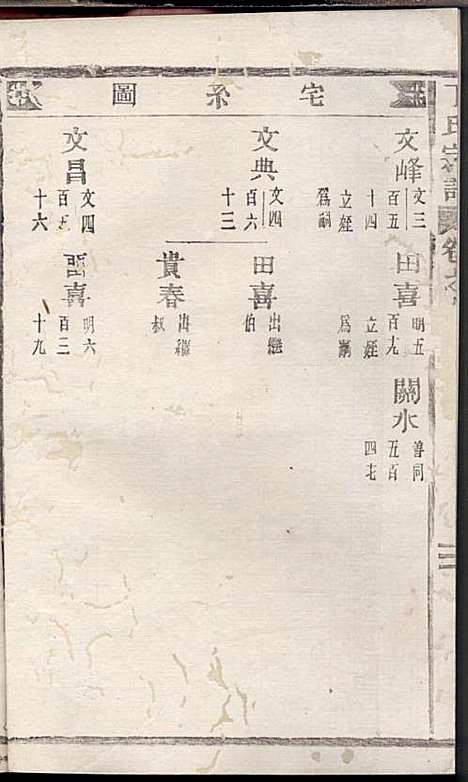 宅系圖
文峰
文三
百五
十四
立姪
爲嗣
田喜
明五
百九
立姪
爲嗣
關水
善同
五百
四七
文典
文四
百六
十三
田喜
出繼
伯
貴春
出繼
叔
文昌
文四
百五
十六
喜
明六
百三
十九
丁氏宗譜
卷之